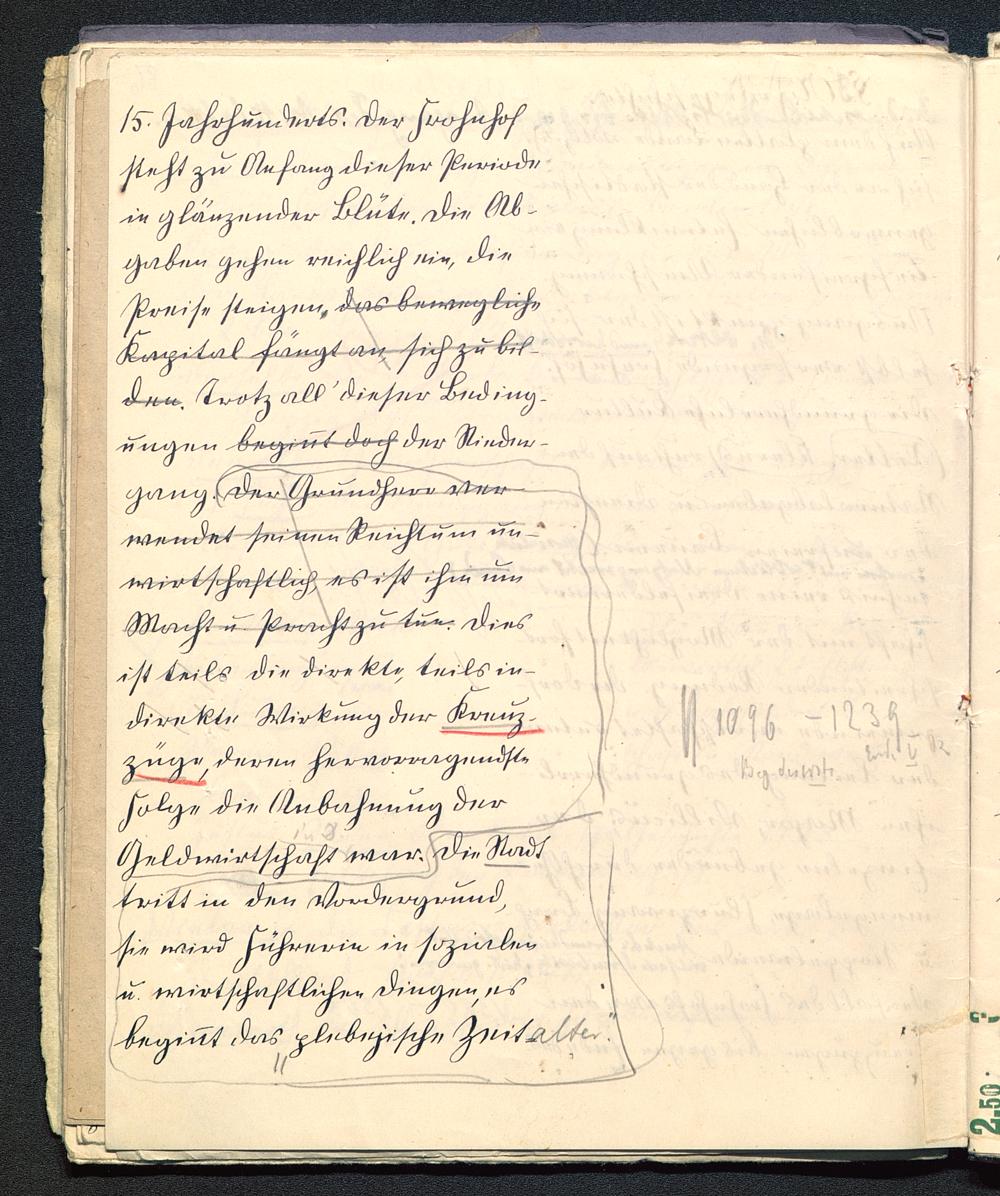 15. Jahrhunderts. Der Frohnhof
steht zu Anfang dieser Periode
in glänzender Blüte. Die Ab-
gaben gehen reichlich ein, die
Preise steigen, das bewegliche
Kapital fängt an, sich zu bil-
den. Trotz all' dieser Beding-
ungen begiñt doch der Nieder-
gang. Der Grundherr ver-
wendet seinen Reichtum un-
wirtschaftlich, es ist ihm um
Macht u. Pracht zu tun. Dies
ist teils die direkte, teils in-
direkte Wirkung der Kreuz-
züge, deren hervorragendste
Folge die Anbahnung der
Geldwirtschaft war. Die Stadt
tritt in den Vordergrund,
sie wird Führerin in sozialen
u. wirtschaftlichen Dingen, es
begiñt das "plebejische Zeitalter."
1096 - 1239